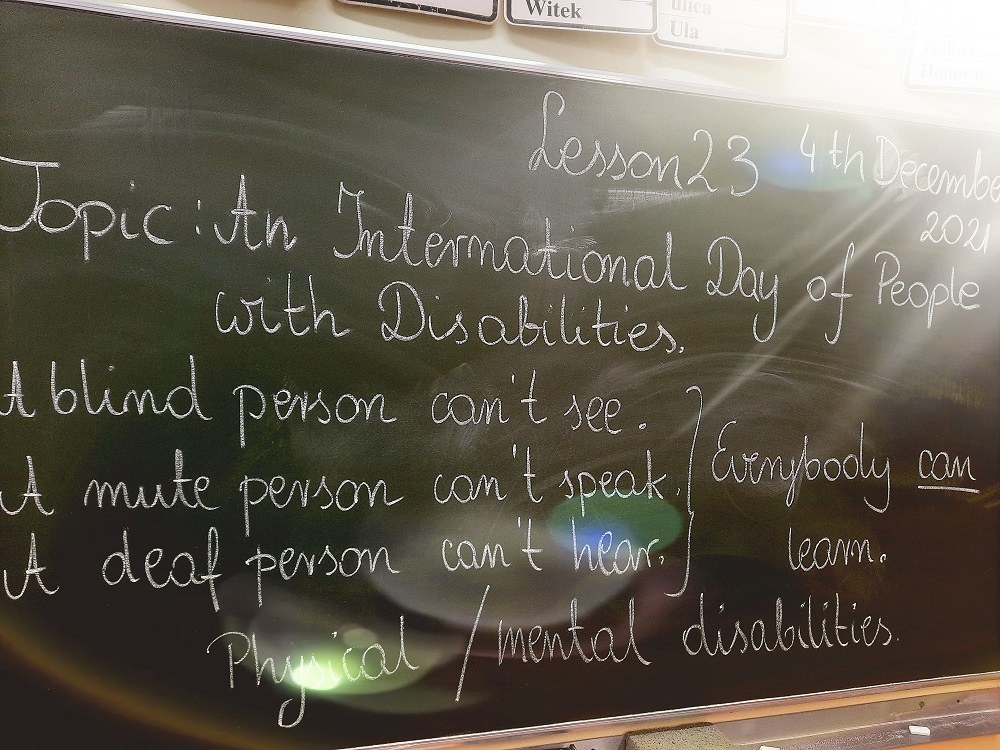 Witek
ulica
Ula
Honorata
Lesson 23 4th Decembe
2021
Topic: An International Day of People
with Disabilities.
A blind person can't see.
A mute person can't speak.
A deaf person can't hear.
Everybody can
learn.
Physical / mental disabilities.